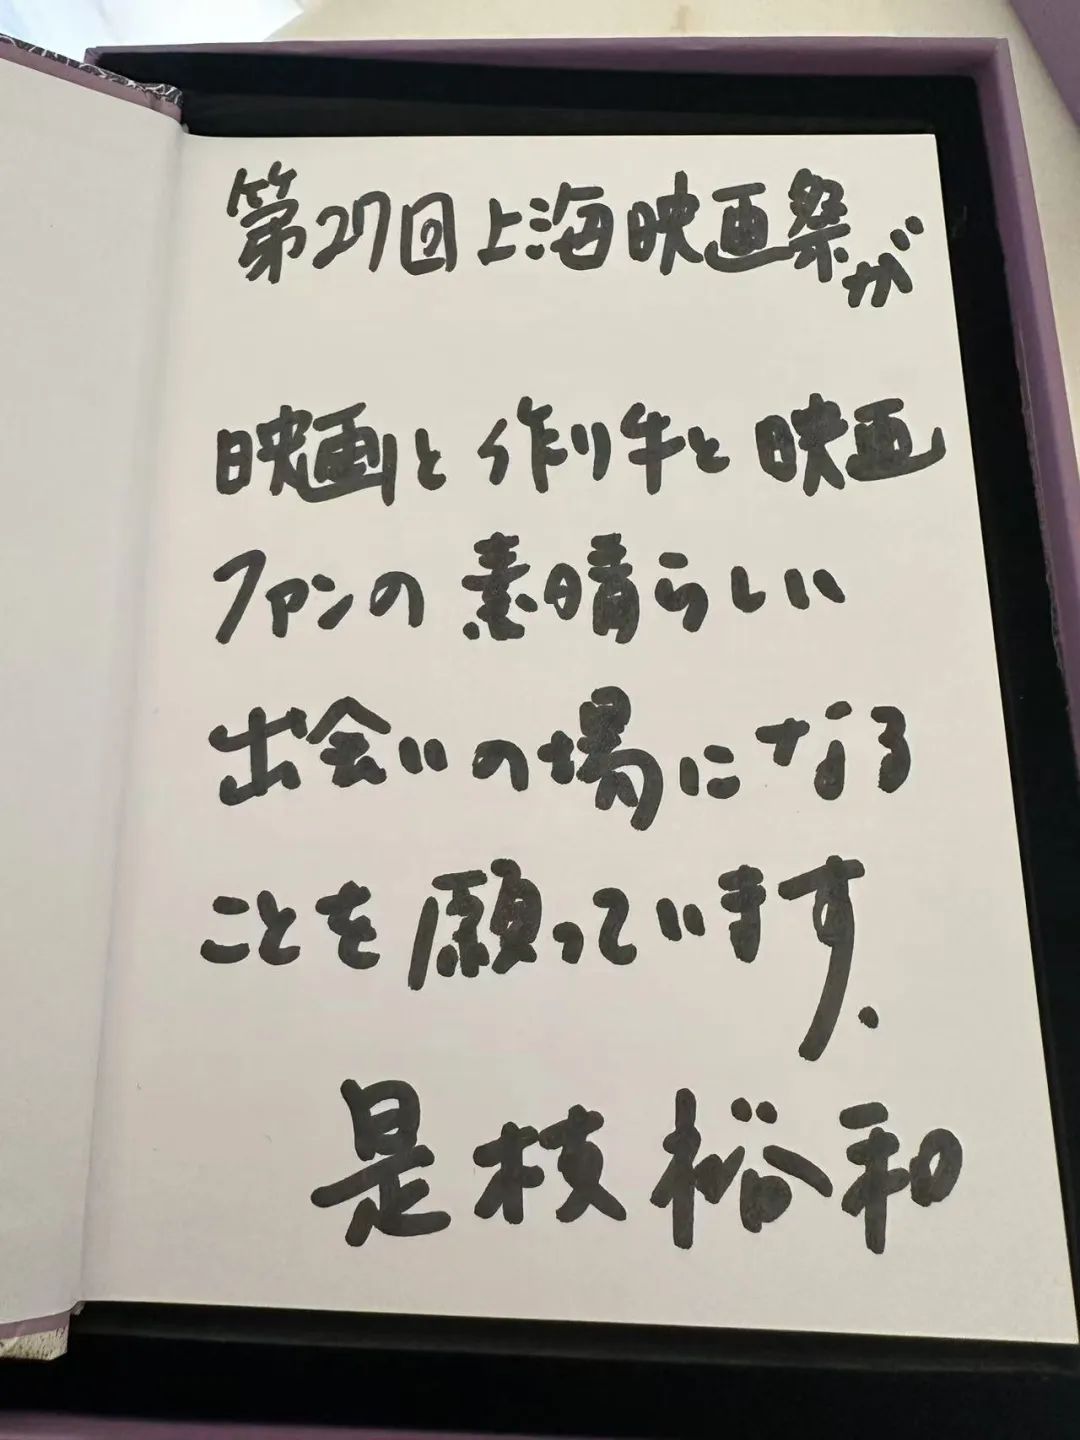 第27回上海映画祭が
映画と作り手と映画
ファンの素晴らしい
出会いの場になる
ことを願っています.
是枝裕和